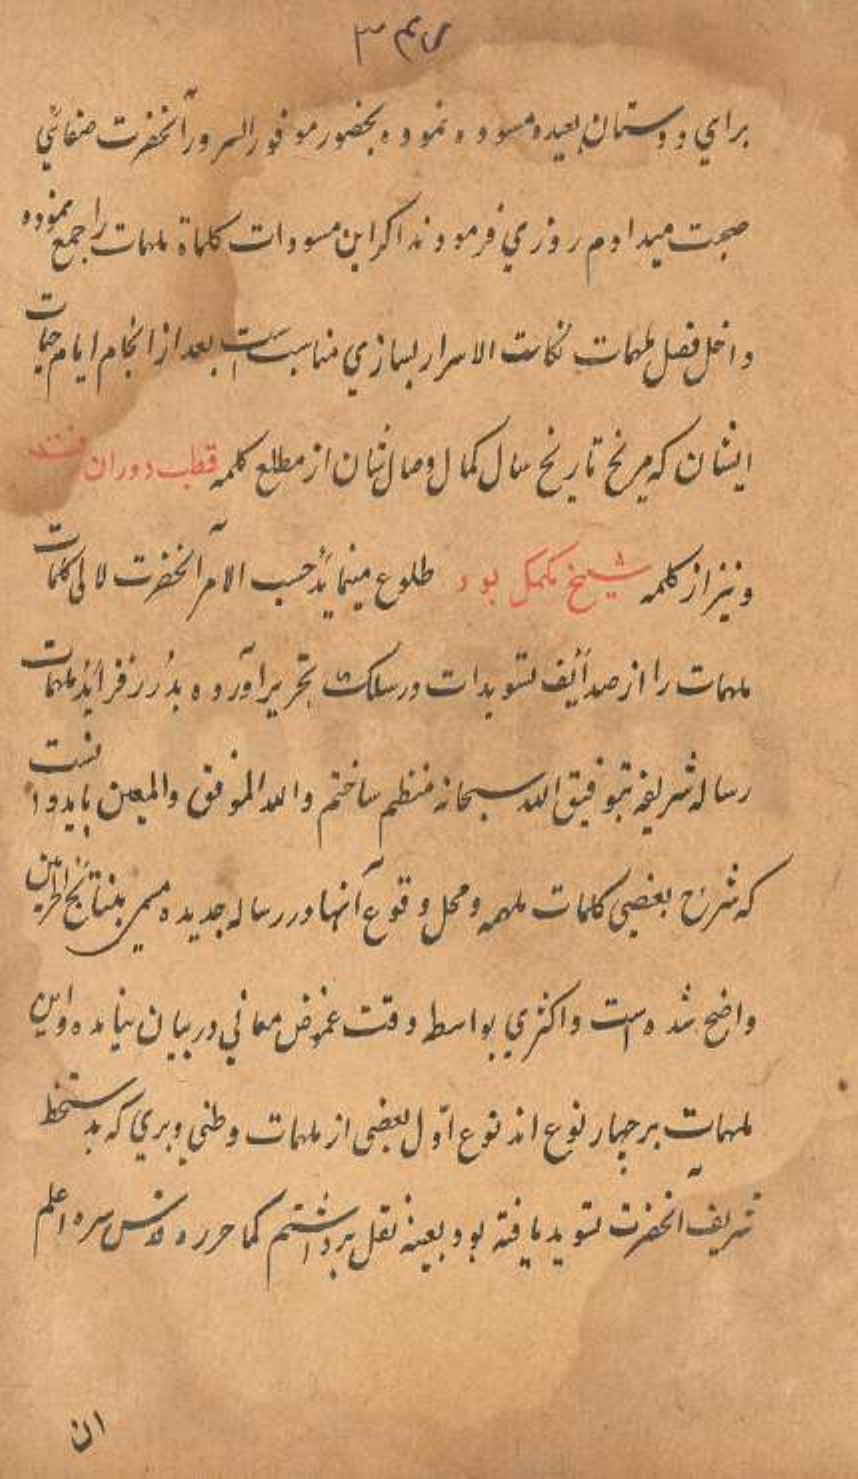 براي دوستان بعيده مسوده نموده بحضور موفور السرور آنحضرت صفائي
صحبت ميدادم روزي فرمودند اكر اين مسودات كلماة ملهمات را جمع نموده
داخل فصل ملهمات نكات الاسرار بسازي مناسب است بعد از انجام ايام حيات
ايشان كه تاريخ سال كمال وصال شان از مطلع كلمه قطب دوران
ونيز از كلمه شيخ مكمل بود طلوع مينمايد حسب الامر آنحضرت لالى كلمات
ملهمات را از صدائف تسويدات در سلك تحرير آورده بدرر فرائد ملهمات
رساله شريفه بتوفيق الله سبحانه منظم ساختم والله الموفق والمعين بايد دانست
كه شرح بعضي كلمات ملهمه ومحل وقوع آنها در رساله جديده مسمى بنتائج الحرمين
واضح شده است واكثري بواسط دقت غموض معاني در بيان نيامده واين
ملهمات بر چهار نوع اند نوع اول بعضى از ملهمات وطني وبري كه بدستخط
شريف آنحضرت تسويد يافته بود بعينه نقل برداشتم كما حرره قدس سره اعلم
ان